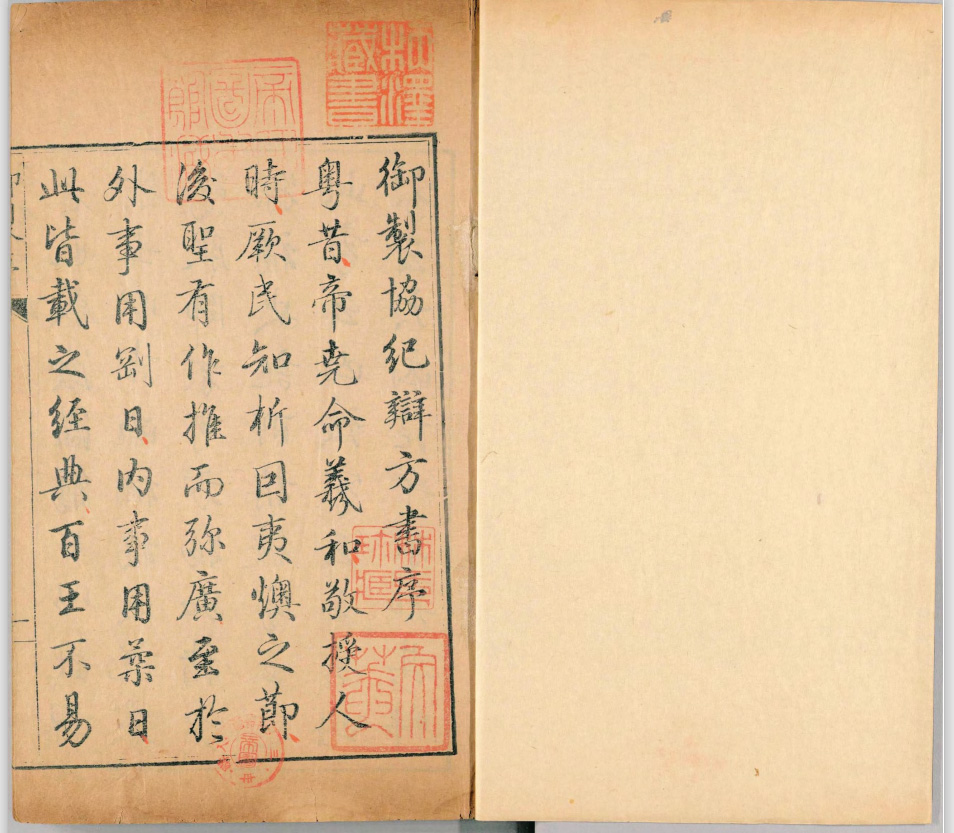 御製協紀辯方書序
粤昔帝堯命羲和敬授人
時厥民知析因夷燠之節
後聖有作推而弥廣至於
外事用剛日内事用柔日
此皆載之經典百王不易
藏書